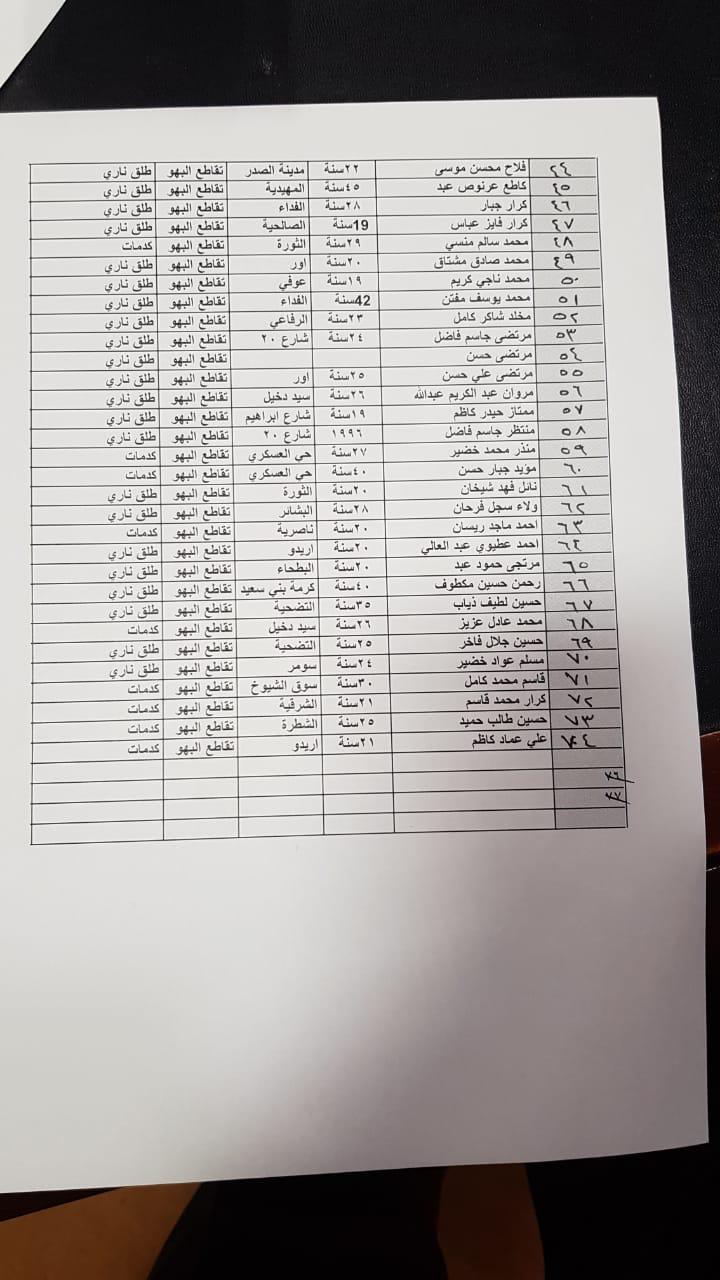 ٤٤ فلاح محسن موسى ٢٢سنة مدينة الصدر تقاطع البهو طلق ناري
٤٥ كاطع عرنوص عبد ٤٥سنة المهيدية تقاطع البهو طلق ناري
٤٦ كرار جبار ٢٨سنة الفداء تقاطع البهو طلق ناري
٤٧ كرار فايز عباس 19سنة الصالحية تقاطع البهو طلق ناري
٤٨ محمد سالم منسي ٢٩سنة الثورة تقاطع البهو كدمات
٤٩ محمد صادق مشتاق ٢٠سنة اور تقاطع البهو طلق ناري
٥٠ محمد ناجي كريم ١٩سنة عوفي تقاطع البهو طلق ناري
٥١ محمد يوسف مفتن 42سنة الفداء تقاطع البهو طلق ناري
٥٢ مخلد شاكر كامل ٢٣سنة الرفاعي تقاطع البهو طلق ناري
٥٣ مرتضى جاسم فاضل ٢٤سنة شارع ٢٠ تقاطع البهو طلق ناري
٥٤ مرتضى حسن تقاطع البهو طلق ناري
٥٥ مرتضى علي حسن ٢٥سنة اور تقاطع البهو طلق ناري
٥٦ مروان عبد الكريم عبدالله ٢٦سنة سيد دخيل تقاطع البهو طلق ناري
٥٧ ممتاز حيدر كاظم ١٩سنة شارع ابراهيم تقاطع البهو طلق ناري
٥٨ منتظر جاسم فاضل ١٩٩٦ شارع ٢٠ تقاطع البهو طلق ناري
٥٩ منذر محمد خضير ٢٧سنة حي العسكري تقاطع البهو كدمات
٦٠ مؤيد جبار حسن ٤٠سنة حي العسكري تقاطع البهو كدمات
٦١ نائل فهد شيخان ٢٠سنة الثورة تقاطع البهو طلق ناري
٦٢ ولاء سجل فرحان ٢٨سنة البشائر تقاطع البهو طلق ناري
٦٣ احمد ماجد ريسان ٢٠سنة ناصرية تقاطع البهو كدمات
٦٤ احمد عطيوي عبد العالي ٢٠سنة اريدو تقاطع البهو طلق ناري
٦٥ مرتجى حمود عبد ٢٠سنة البطحاء تقاطع البهو طلق ناري
٦٦ رحمن حسين مكطوف ٤٠سنة كرمة بني سعيد تقاطع البهو طلق ناري
٦٧ حسين لطيف ذياب ٣٥سنة التضحية تقاطع البهو طلق ناري
٦٨ محمد عادل عزيز ٢٦سنة سيد دخيل تقاطع البهو كدمات
٦٩ حسين جلال فاخر ٢٥سنة التضحية تقاطع البهو طلق ناري
٧٠ مسلم عواد خضير ٢٤سنة سومر تقاطع البهو طلق ناري
٧١ قاسم محمد كامل ٣٠سنة سوق الشيوخ تقاطع البهو كدمات
٧٢ كرار محمد قاسم ٢١سنة الشرقية تقاطع البهو كدمات
٧٣ حسين طالب حميد ٢٥سنة الشطرة تقاطع البهو كدمات
٧٤ علي عماد كاظم ٢١سنة اريدو تقاطع البهو كدمات